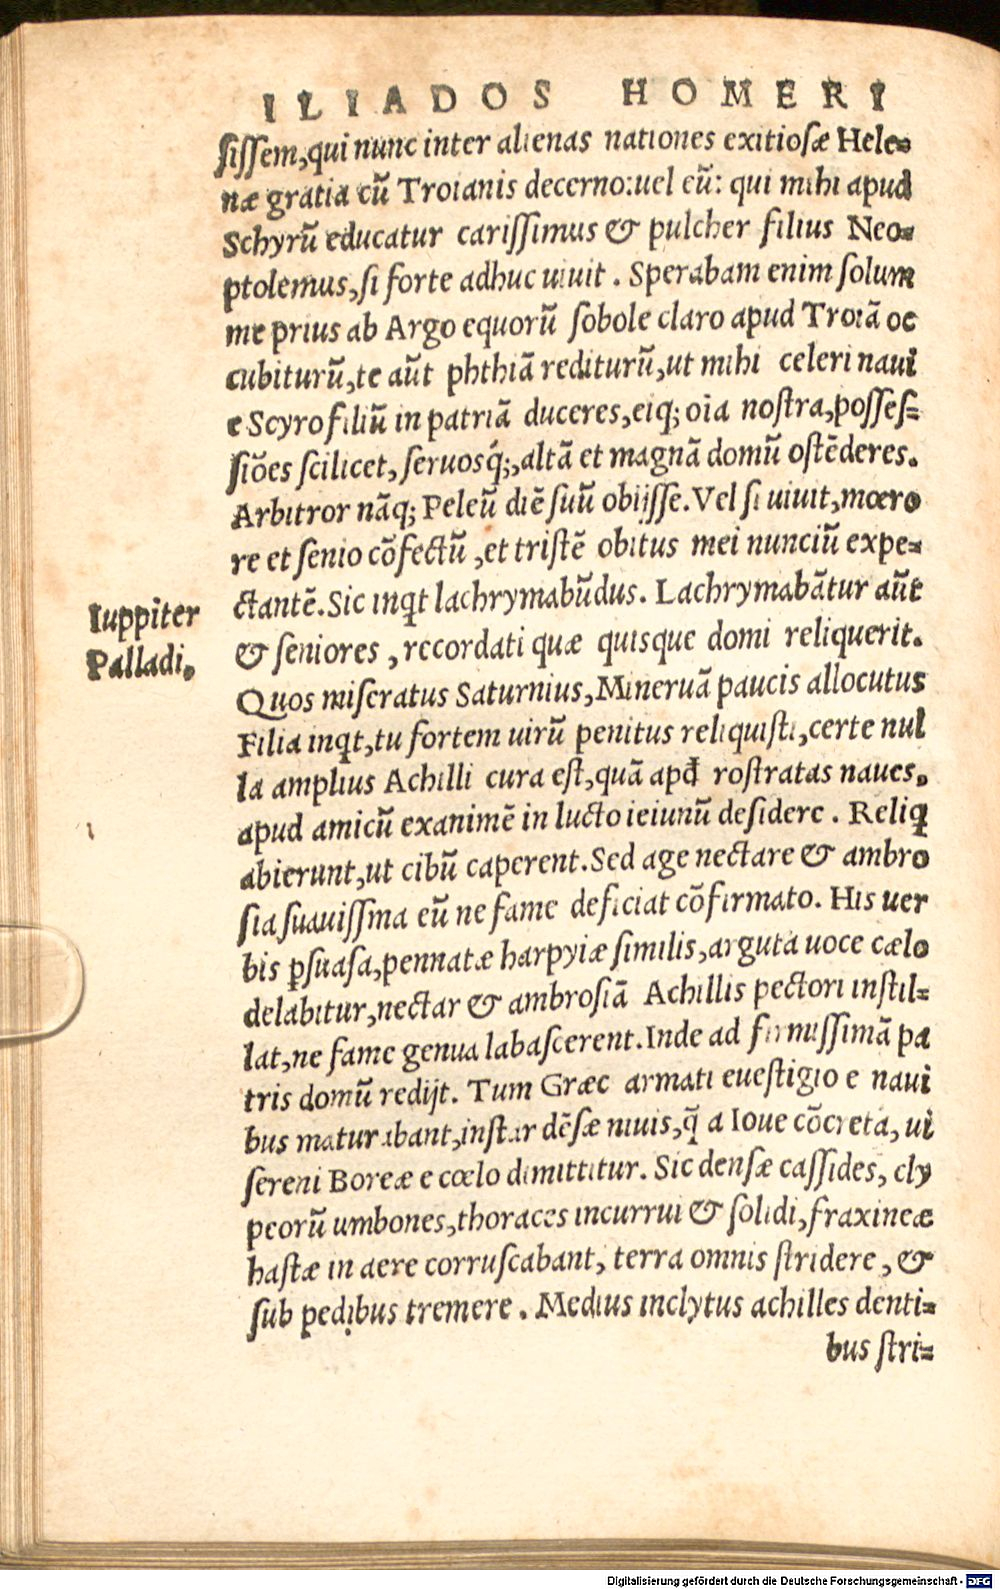 ILIADOS HOMERI
ſiſſem,qui nunc inter alienas nationes exitioſæ Hele=
næ gratia cũ Troianis decerno:uel eũ: qui mihi apud
Schyrũ educatur cariſſimus & pulcher filius Neo=
ptolemus,ſi forte adhuc uiuit. Sperabam enim ſolum
me prius ab Argo equorũ ſobole claro apud Troiã oc
cubiturũ,te aũt phthiã rediturũ,ut mihi celeri naui
e Scyro filiũ in patriã duceres,eiq; oĩa noſtra,poſſeſ=
ſiões ſcilicet,ſeruosq́;,altã et magnã domũ oſtẽderes.
Arbitror nãq; Peleũ diẽ ſuũ obijſſe.Vel ſi uiuit,mœro
re et ſenio cõfectũ,et triſtẽ obitus mei nunciũ expe=
ctantẽ.Sic inqt lachrymabũdus. Lachrymabãtur aũt
& ſeniores,recordati quæ quisque domi reliquerit.
Iuppiter
Palladi.
Quos miſeratus Saturnius,Mineruã paucis allocutus
Filia inqt,tu fortem uirũ penitus reliquiſti,certe nul
la amplius Achilli cura eſt,quã apđ roſtratas naues.
apud amicũ exanimẽ in lucto ieiunũ deſidere. Reliq
abierunt,ut cibũ caperent.Sed age nectare & ambro
ſia ſuauiſſma eũ ne fame deficiat cõfirmato. His uer
bis ꝑſuaſa,pennatæ harpyiæ ſimilis,arguta uoce cælo
delabitur,nectar & ambroſiã Achillis pectori inſtil=
lat,ne fame genua labaſcerent.Inde ad firmiſſimã pa
tris domũ redijt. Tum Græc armati eueſtigio e naui
bus maturabant,inſtar dẽſæ niuis,q̃ a Ioue cõcreta, ui
ſereni Boreæ e cœlo dimittitur. Sic denſæ caſſides, cly
peorũ umbones,thoraces incurrui & ſolidi,fraxineæ
haſtæ in aere corruſcabant, terra omnis ſtridere, &
ſub pedibus tremere. Medius inclytus achilles denti=
bus ſtri=
Digitalisierung gefördert durch die Deutsche Forschungsgemeinschaft - DFG